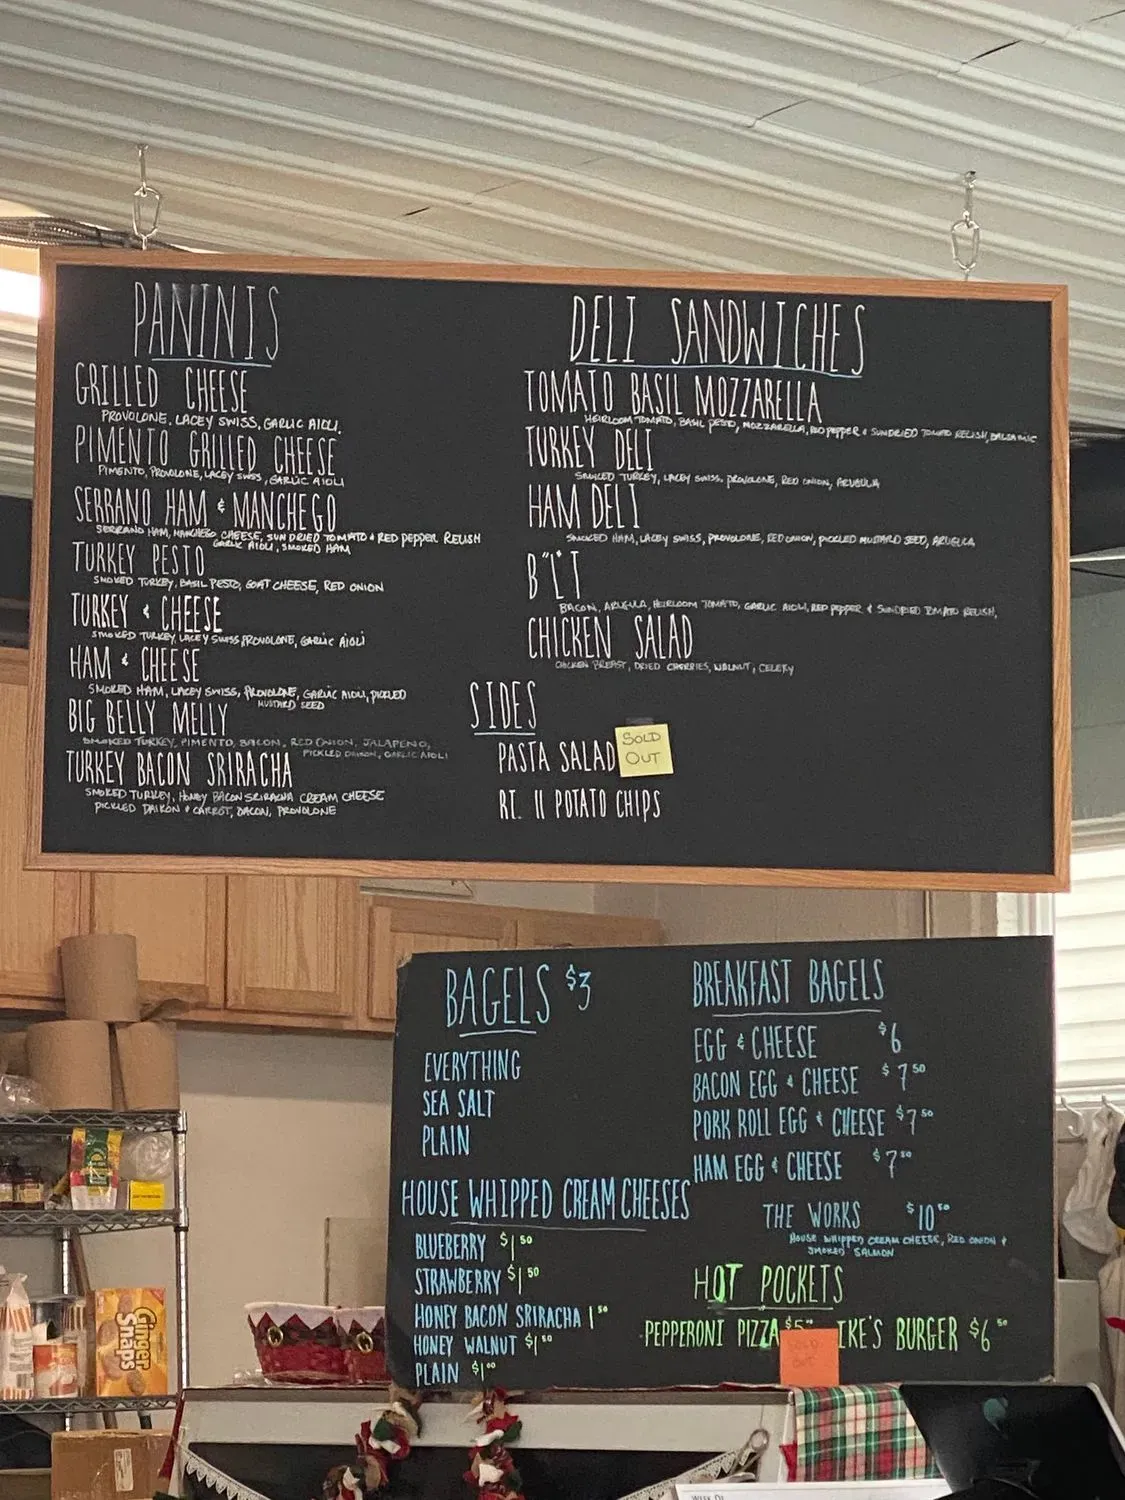 PANINIS
GRILLED CHEESE
PROVOLONE, LACEY SWISS, GARLIC AIOLI.
PIMENTO GRILLED CHEESE
PIMENTO, PROVOLONE, LACEY SWISS, GARLIC AIOLI
SERRANO HAM & MANCHEGO
SERRANO HAM, MANCHEGO CHEESE, SUN DRIED TOMATO & RED PEPPER RELISH
GARLIC AIOLI, SMOKED HAM
TURKEY PESTO
SMOKED TURKEY, BASIL PESTO, GOAT CHEESE, RED ONION
TURKEY & CHEESE
SMOKED TURKEY, LACEY SWISS, PROVOLONE, GARLIC AIOLI
HAM & CHEESE
SMOKED HAM, LACEY SWISS, PROVOLONE, GARLIC AIOLI, PICKLED
MUSTARD SEED
BIG BELLY MELLY
SMOKED TURKEY, PIMENTO, BACON, RED ONION, JALAPENO,
PICKLED DAIKON, GARLIC AIOLI
TURKEY BACON SRIRACHA
SMOKED TURKEY, HONEY BACON SRIRACHA CREAM CHEESE
PICKLED DAIKON & CARROT, BACON, PROVOLONE
DELI SANDWICHES
TOMATO BASIL MOZZARELLA
HEIRLOOM TOMATO, BASIL PESTO, MOZZARELLA, RED PEPPER & SUNDRIED TOMATO RELISH, BALSAMIC
TURKEY DELI
SMOKED TURKEY, LACEY SWISS, PROVOLONE, RED ONION, ARUGULA
HAM DELI
SMOKED HAM, LACEY SWISS, PROVOLONE, RED ONION, PICKLED MUSTARD SEED, ARUGULA
B"L"T
BACON, ARUGULA, HEIRLOOM TOMATO, GARLIC AIOLI, RED PEPPER & SUNDRIED TOMATO RELISH,
CHICKEN SALAD
CHICKEN BREAST, DRIED CHERRIES, WALNUT, CELERY
SIDES
PASTA SALAD SOLD OUT
RT. 11 POTATO CHIPS
BAGELS $3
EVERYTHING
SEA SALT
PLAIN
HOUSE WHIPPED CREAM CHEESES
BLUEBERRY $1 50
STRAWBERRY $1 50
HONEY BACON SRIRACHA 1 50
HONEY WALNUT $1 50
PLAIN $1 00
BREAKFAST BAGELS
EGG & CHEESE $6
BACON EGG & CHEESE $7 50
PORK ROLL EGG & CHEESE $7 50
HAM EGG & CHEESE $7 50
THE WORKS $10 50
HOUSE WHIPPED CREAM CHEESE, RED ONION &
SMOKED SALMON
HOT POCKETS
PEPPERONI PIZZA $5 IKE'S BURGER $6 50
SOLD
OUT
Ginger
Snaps